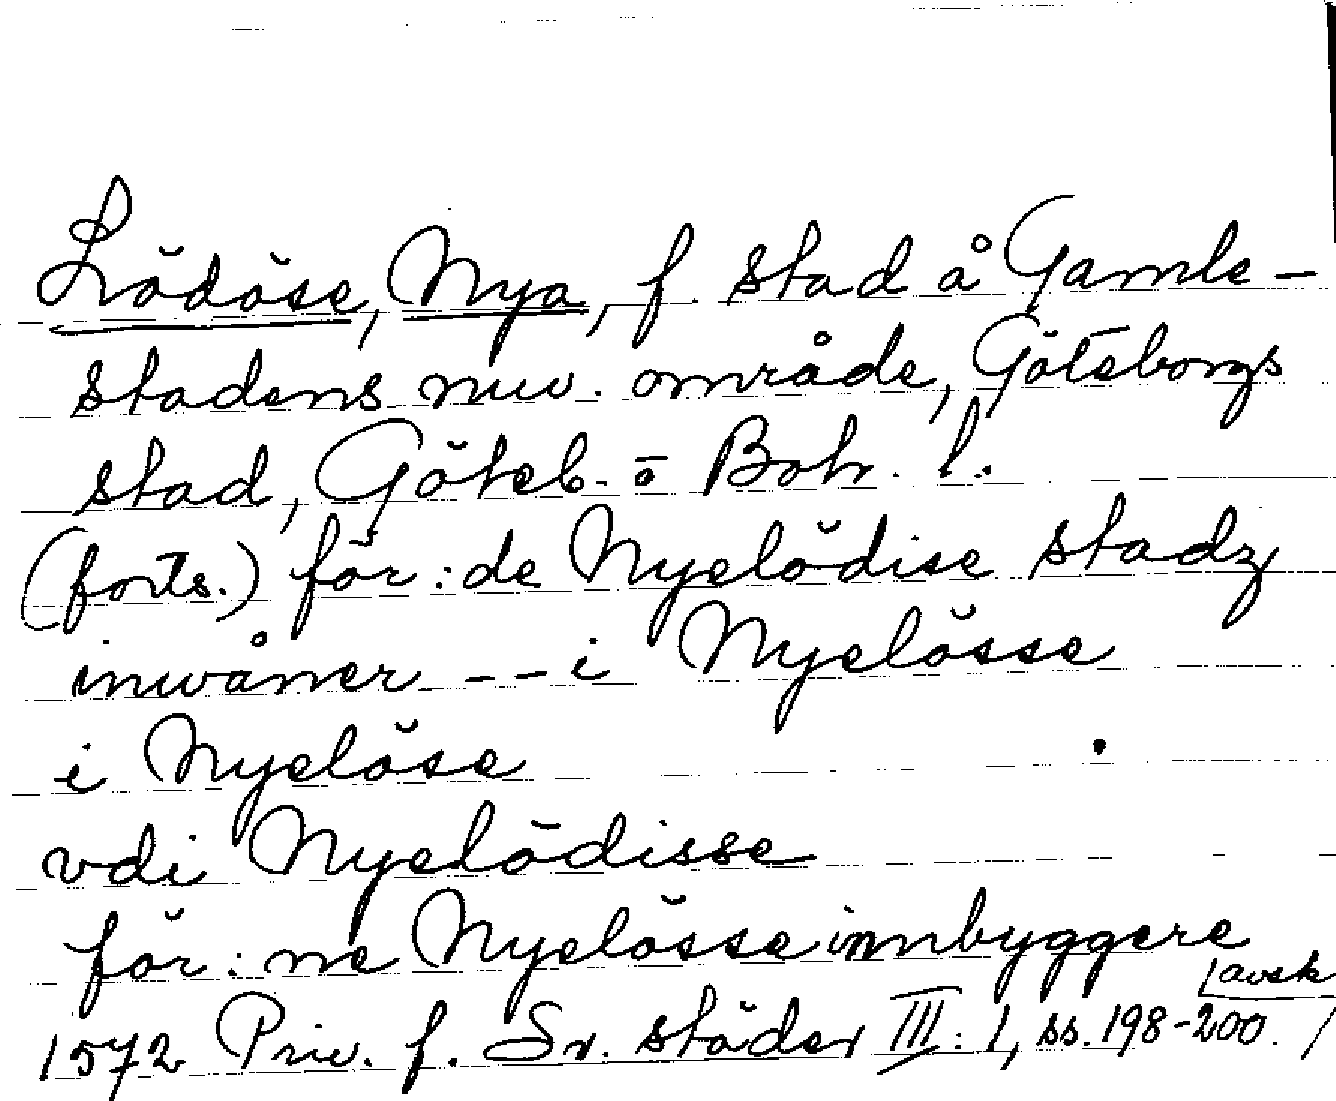 Lödöse, Nya, f. stad å Gamle-
stadens nuv. område, Göteborgs
stad, Göteb. o Boh. l.
(forts.) för: de Nyelödise stadz
inwåner --- i Nyelösse
i Nyelöse
vdi Nyelödisse
för: ne Nyelösse innbyggere
/avsk
1572 Priv. f. Sv. städer III: 1, ss. 198-200. /